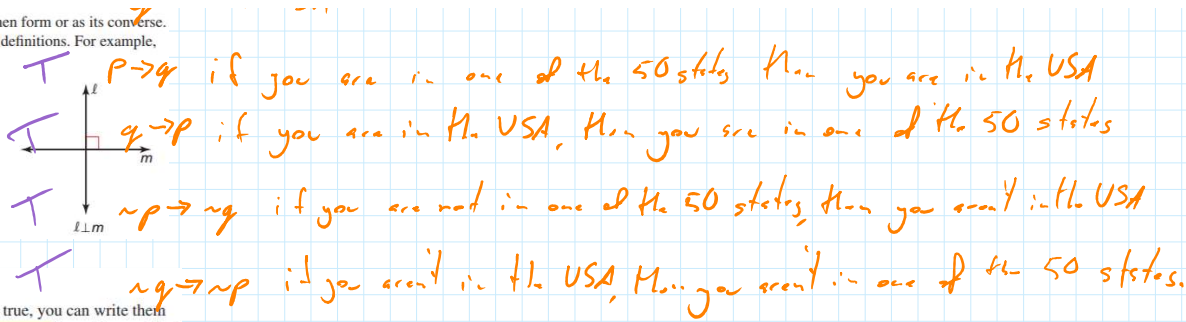 en form or as its converse.
definitions. For example,
T p→q if you are in one of the 50 states then you are in the USA
ℓ
T q→p if you are in the USA, then you are in one of the 50 states
m
T ~p→~q if you are not in one of the 50 states, then you aren't in the USA
ℓ⊥m
T ~q→~p if you aren't in the USA, then you aren't in one of the 50 states.
true, you can write them